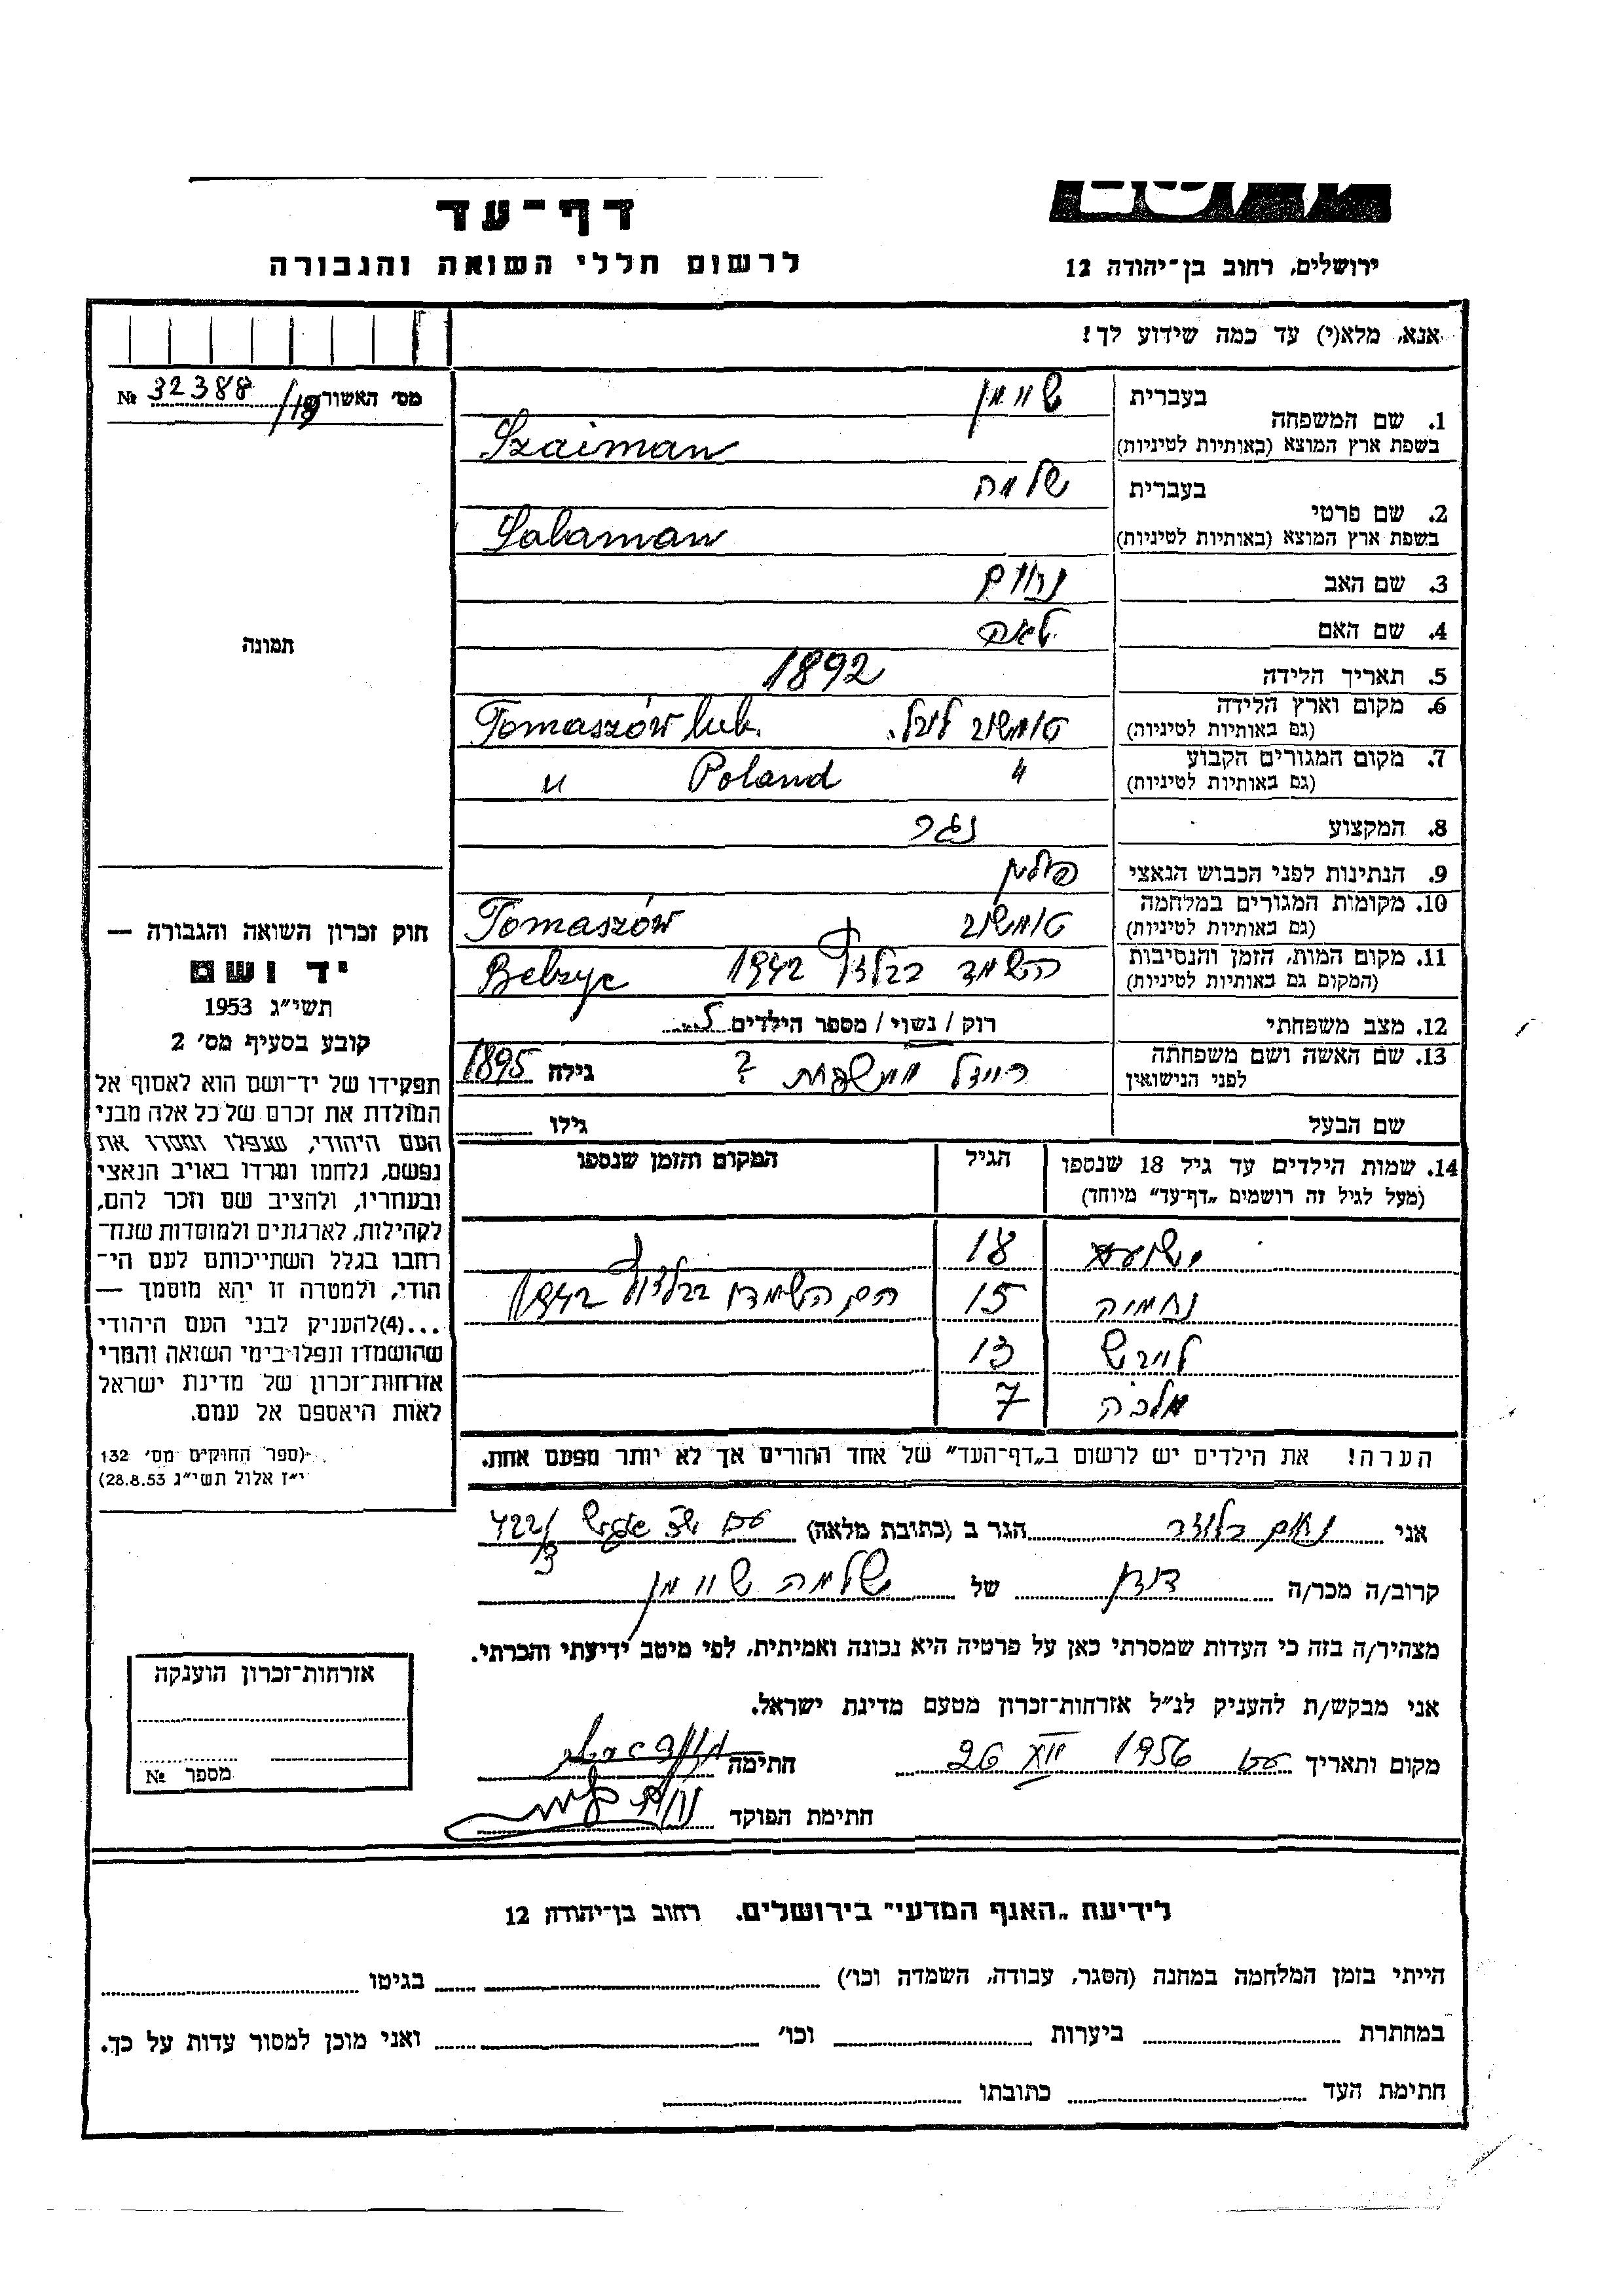 דף-עד
לרשום חללי השואה והגבורה
ירושלים, רחוב בן-יהודה 12
אנא, מלא(י) עד כמה שידוע לך!
מס' האשור № 32388/19
1. שם המשפחה
בעברית שיימן
בשפת ארץ המוצא (באותיות לטיניות) Szaiman
2. שם פרטי
בעברית שלמה
בשפת ארץ המוצא (באותיות לטיניות) Salaman
3. שם האב נחום
4. שם האם לאה
5. תאריך הלידה 1892
6. מקום וארץ הלידה טומשוב לובל. Tomaszów lub.
(גם באותיות לטיניות)
7. מקום המגורים הקבוע " Poland "
(גם באותיות לטיניות)
8. המקצוע נגר
9. הנתינות לפני הכבוש הנאצי פולין
10. מקומות המגורים במלחמה טומשוב Tomaszów
(גם באותיות לטיניות)
11. מקום המות, הזמן והנסיבות השמד בבלזץ 1942 Belzyc
(המקום גם באותיות לטיניות)
12. מצב משפחתי רוק / נשוי / מספר הילדים
13. שם האשה ושם משפחתה
לפני הנישואין ריידל משפחת ? גילה 1895
שם הבעל גילו
14. שמות הילדים עד גיל 18 שנספו הגיל המקום והזמן שנספו
(מעל לגיל זה רושמים „דף-עד" מיוחד)
18
נחמיה 15 הם השמדו בבלזץ 1942
13
מלכה 7
הערה! את הילדים יש לרשום ב„דף-העד" של אחד ההורים אך לא יותר מפעם אחת.
תמונה
חוק זכרון השואה והגבורה —
יד ושם
תשי"ג 1953
קובע בסעיף מס' 2
תפקידו של יד-ושם הוא לאסוף אל
המולדת את זכרם של כל אלה מבני
העם היהודי, שנפלו ומסרו את
נפשם, נלחמו ומרדו באויב הנאצי
ובעוזריו, ולהציב שם וזכר להם,
לקהילות, לארגונים ולמוסדות שנח-
רבו בגלל השתייכותם לעם הי-
הודי, ולמטרה זו יהא מוסמך —
...(4)להעניק לבני העם היהודי
שהושמדו ונפלו בימי השואה והמרי
אזרחות-זכרון של מדינת ישראל
לאות היאספם אל עמם.
(ספר החוקים מס' 132
י"ז אלול תשי"ג 28.8.53)
אני נחום הגר ב (כתובת מלאה) 422/3
קרוב/ה מכר/ה דודן של שלמה שיימן
מצהיר/ה בזה כי העדות שמסרתי כאן על פרטיה היא נכונה ואמיתית, לפי מיטב ידיעתי והכרתי.
אני מבקש/ת להעניק לנ"ל אזרחות-זכרון מטעם מדינת ישראל.
מקום ותאריך 26 XII 1956 חתימה
חתימת הפוקד
אזרחות-זכרון הוענקה
מספר №
לידיעת „האגף המדעי" בירושלים. רחוב בן-יהודה 12
הייתי בזמן המלחמה במחנה (הסגר, עבודה, השמדה וכו') בגיטו
במחתרת ביערות וכו' ואני מוכן למסור עדות על כך.
חתימת העד כתובתו